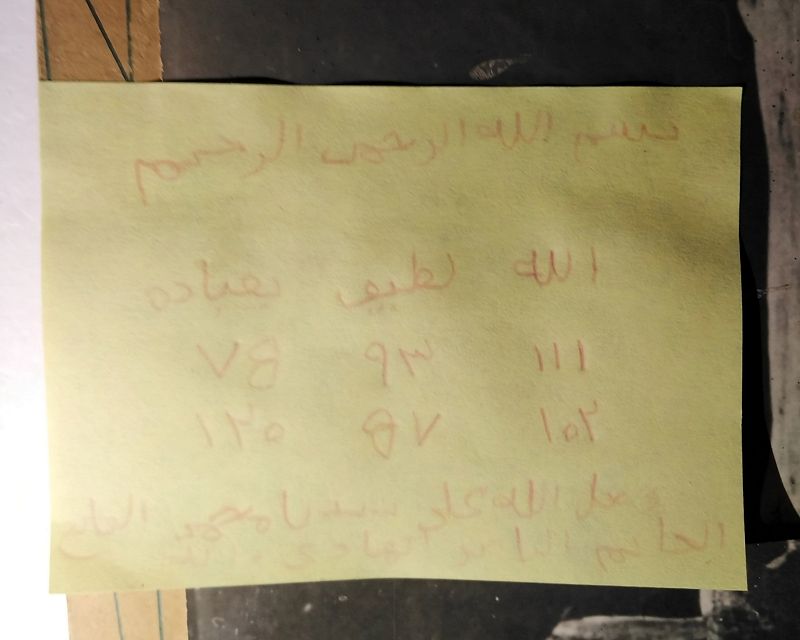 بسم الله الرحمن الرحيم
الله لطيف بعباده
١١١ ٩٣
١٥٢ ١٢٥
وصل الله على سيدنا محمد الفاتح
الخاتم الناصر الهادي و آله